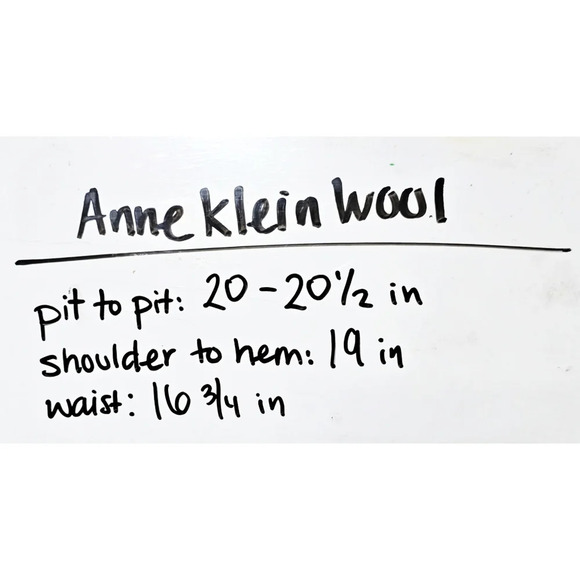 Anne Klein Wool
pit to pit: 20 - 20 1/2 in
shoulder to hem: 19 in
waist: 16 3/4 in